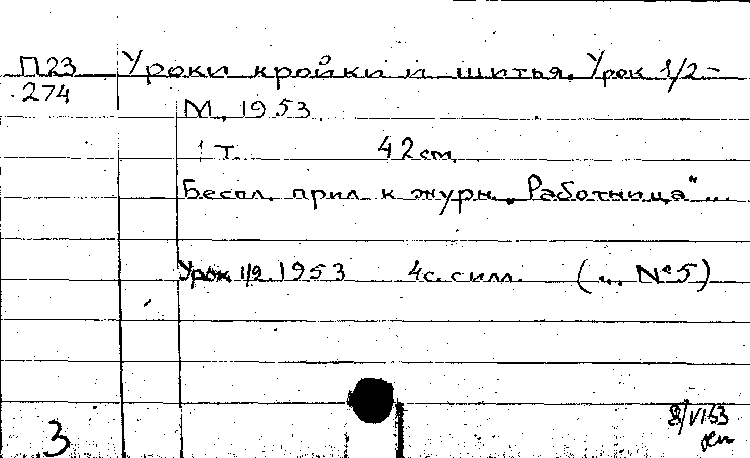 П23 Уроки кройки и шитья. Урок 1/2-
274
М., 1953.
1 т. 42 см.
Беспл. прил. к журн. „Работница"...
Урок 1/2. 1953 4 с. с илл. (... № 5)
8/VI 53
3